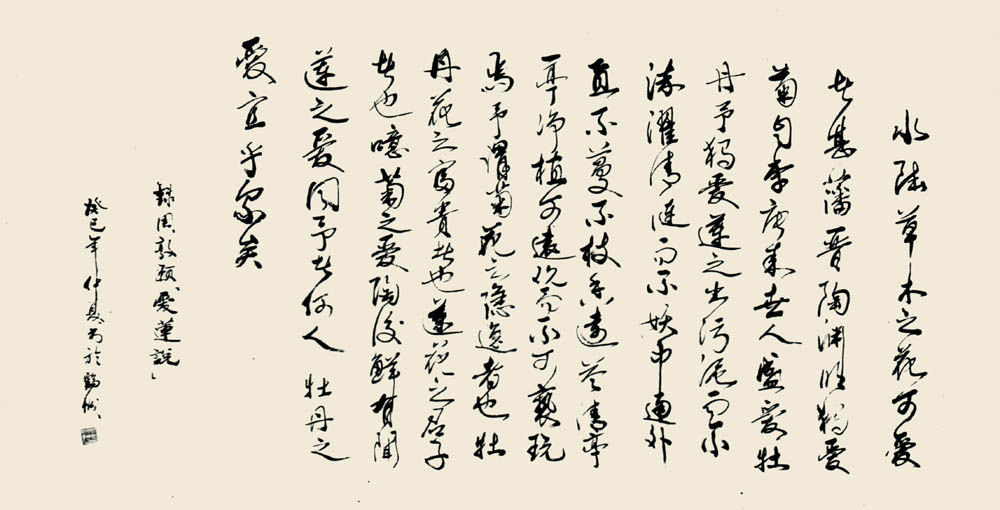 水陆草木之花可愛
者甚藩晋陶渊明独愛
菊自李唐来世人盛爱牡
丹予独愛蓮之出污泥而不
染濯清涟而不妖中通外
直不蔓不枝香遠益清亭
亭净植可遠观而不可亵玩
焉予謂菊花之隐逸者也牡
丹花之富貴者也蓮花之君子
者也噫菊之愛陶後鮮有聞
蓮之愛同予者何人 牡丹之
愛宜乎衆矣
録周敦頤、愛蓮説」
癸巳年仲夏书於